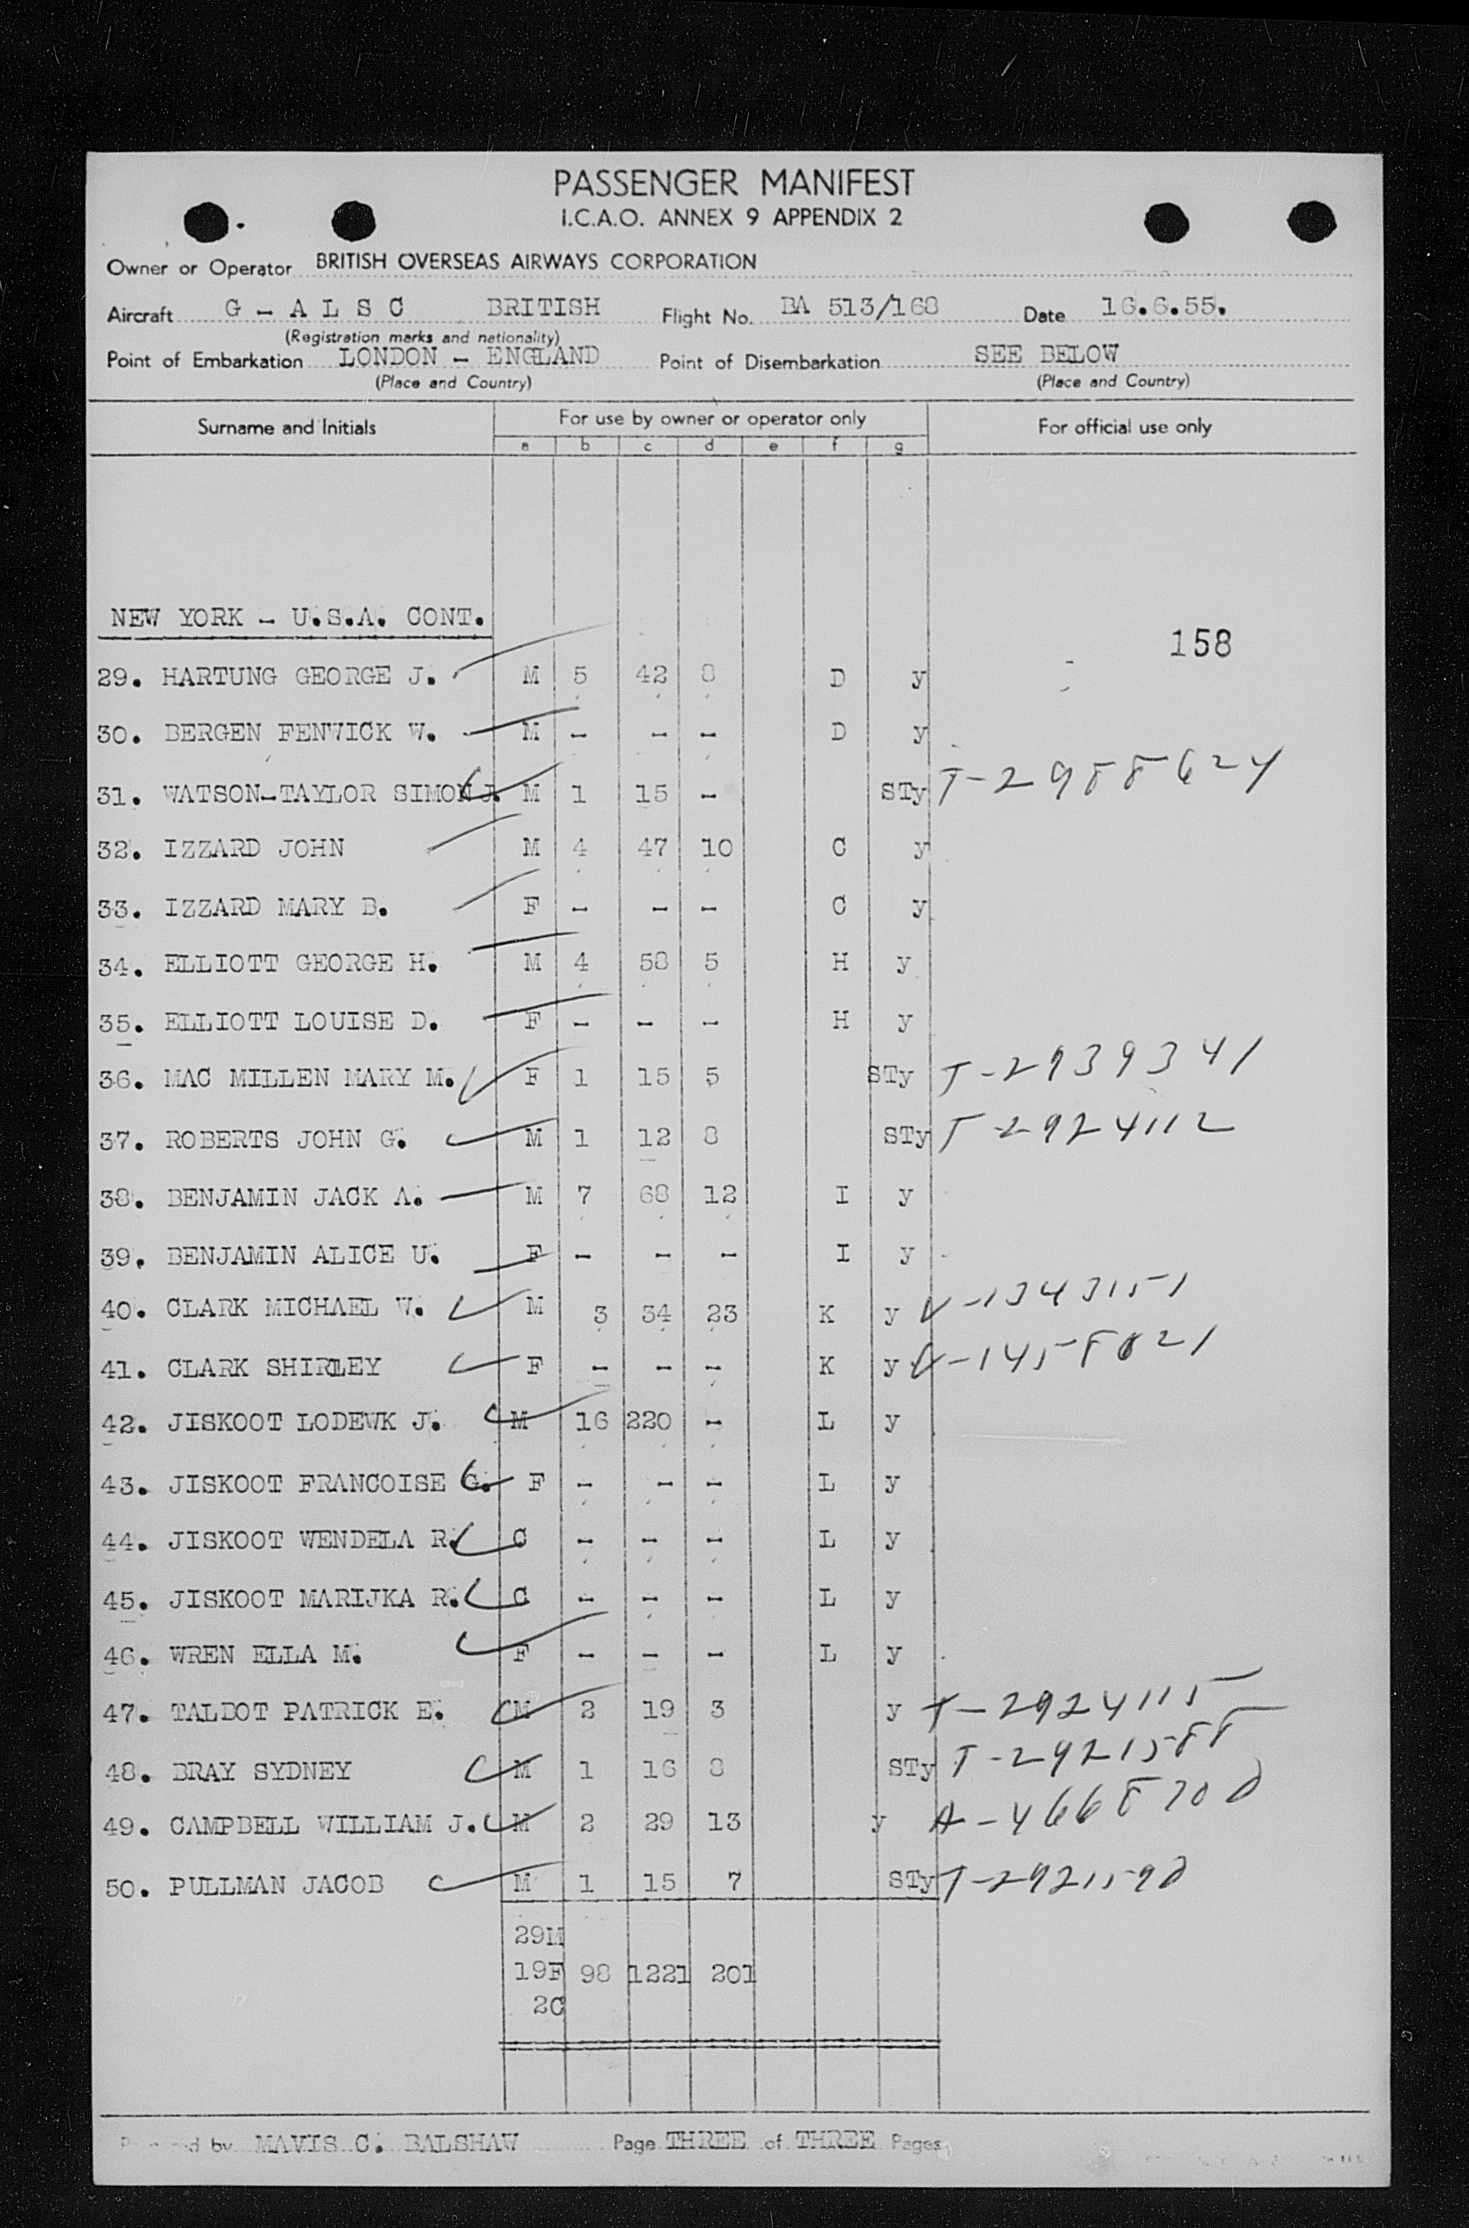 PASSENGER MANIFEST
I.C.A.O. ANNEX 9 APPENDIX 2
Owner or Operator BRITISH OVERSEAS AIRWAYS CORPORATION
Aircraft G - A L S C BRITISH Flight No. BA 513/168 Date 16.6.55.
(Registration marks and nationality)
Point of Embarkation LONDON - ENGLAND Point of Disembarkation SEE BELOW
(Place and Country) (Place and Country)
Surname and Initials For use by owner or operator only For official use only
a b c d e f g
NEW YORK - U.S.A. CONT.
158
29. HARTUNG GEORGE J. M 5 42 8 D y
30. BERGEN FENWICK W. M - - - D y
31. WATSON-TAYLOR SIMON J. M 1 15 - STy T-2988624
32. IZZARD JOHN M 4 47 10 C y
33. IZZARD MARY B. F - - - C y
34. ELLIOTT GEORGE H. M 4 58 5 H y
35. ELLIOTT LOUISE D. F - - - H y
36. MAC MILLEN MARY M. F 1 15 5 STy T-2939341
37. ROBERTS JOHN G. M 1 12 8 STy T-2924112
38. BENJAMIN JACK A. M 7 68 12 I y
39. BENJAMIN ALICE U. F - - - I y
40. CLARK MICHAEL W. M 3 34 23 K y V-1343151
41. CLARK SHIRLEY F - - - K y V-1458021
42. JISKOOT LODEWK J. M 16 220 - L y
43. JISKOOT FRANCOISE G. F - - - L y
44. JISKOOT WENDELA R. C - - - L y
45. JISKOOT MARIJKA R. C - - - L y
46. WREN ELLA M. F - - - L y
47. TALBOT PATRICK E. M 2 19 3 y T-2924115
48. BRAY SYDNEY M 1 16 8 STy T-2921588
49. CAMPBELL WILLIAM J. M 2 29 13 y A-4668700
50. PULLMAN JACOB M 1 15 7 STy T-2921590
29M
19F 98 1221 201
2C
by MAVIS C. BALSHAW Page THREE of THREE Pages